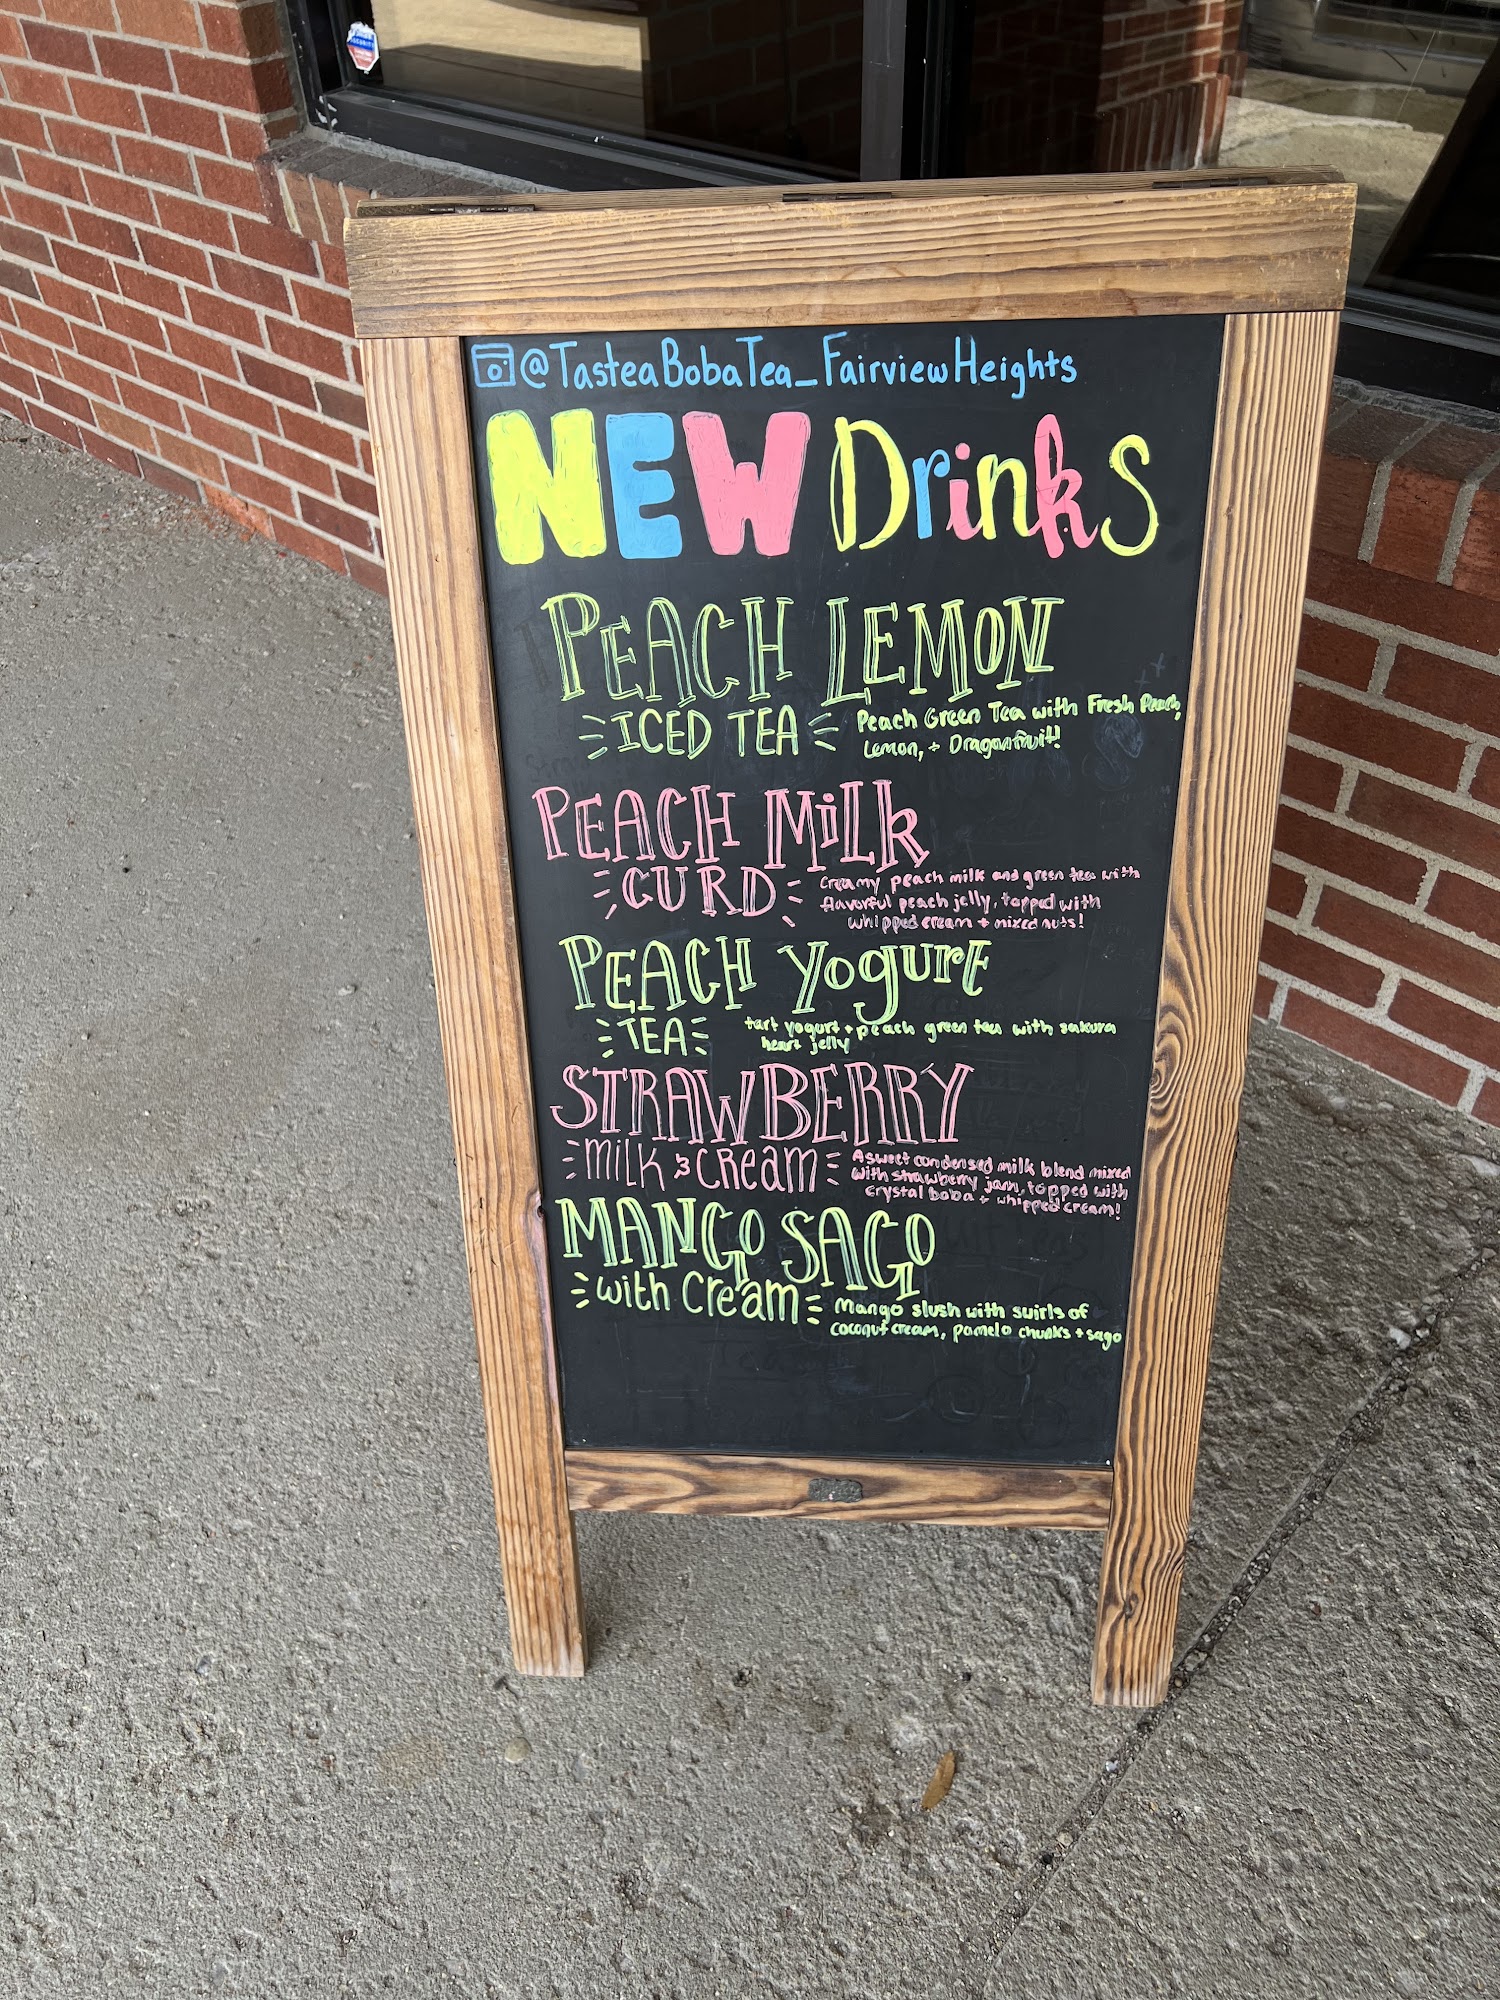 @TasteaBobaTea_FairviewHeights
NEW Drinks
PEACH LEMON
ICED TEA
Peach Green Tea with Fresh Peach,
Lemon, + Dragonfruit!
PEACH MiLk
CURD
Creamy peach milk and green tea with
flavorful peach jelly, topped with
whipped cream + mixed nuts!
PEACH YogurT
TEA
tart yogurt + peach green tea with sakura
heart jelly
STRAWBERRY
MiLK & CReam
A sweet condensed milk blend mixed
with strawberry jam, topped with
crystal boba + whipped cream!
MANGO SAGO
with Cream
Mango slush with swirls of
coconut cream, pamelo chunks + sago